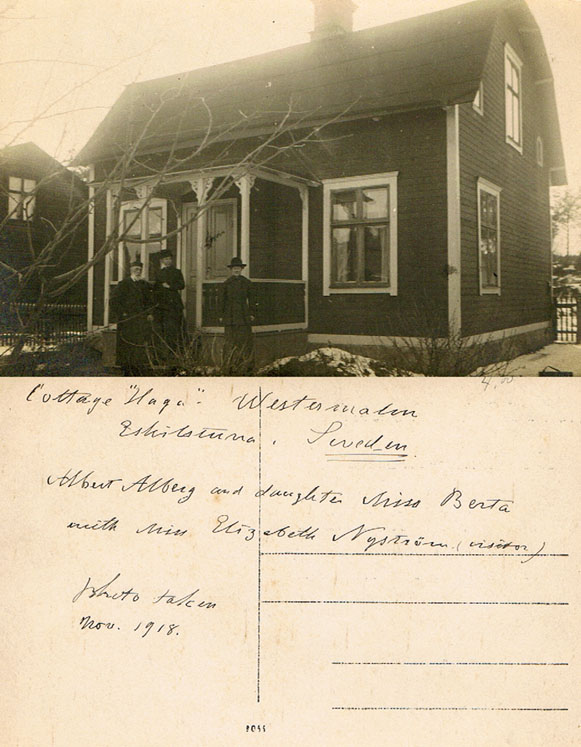 4.00
Cottage "Haga". Westermalm
Eskilstuna. Sweden
Albert Alberg and daughter Miss Berta
with Miss Elizabeth Nyström (visitor)
photo taken
Nov. 1918.